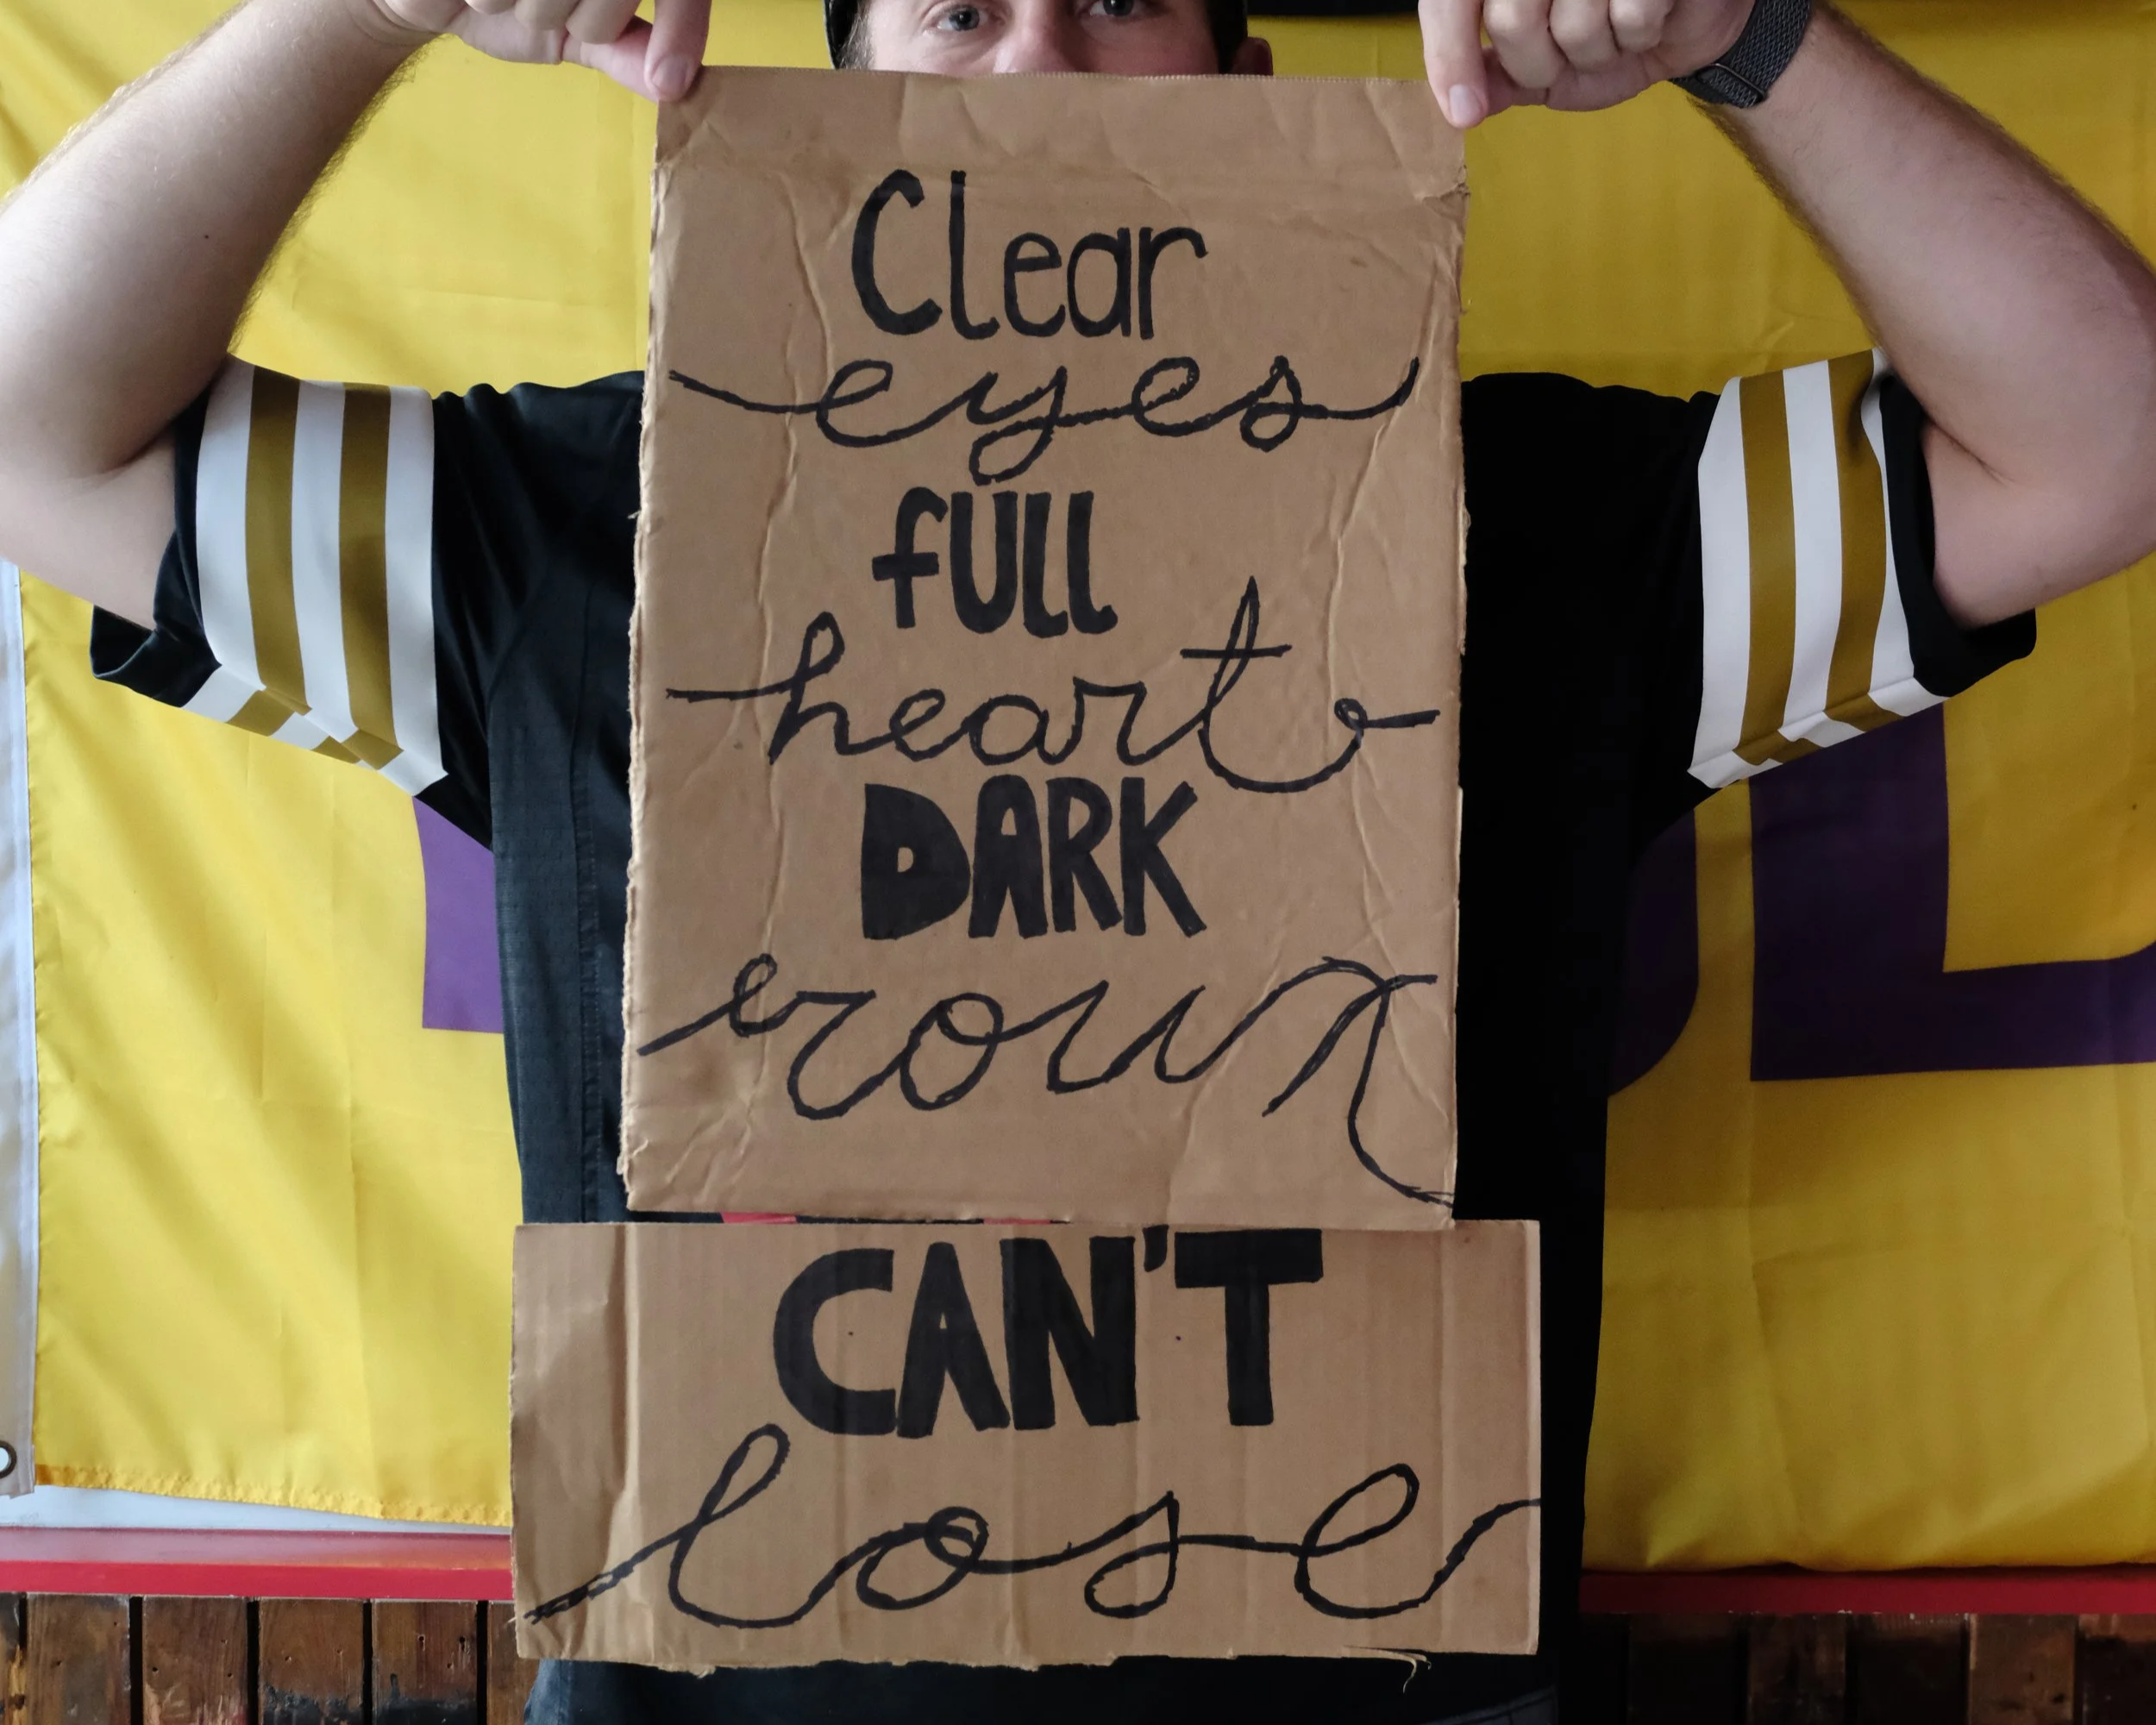 Clear
eyes
fULL
heart
DARK
roux
CAN'T
lose